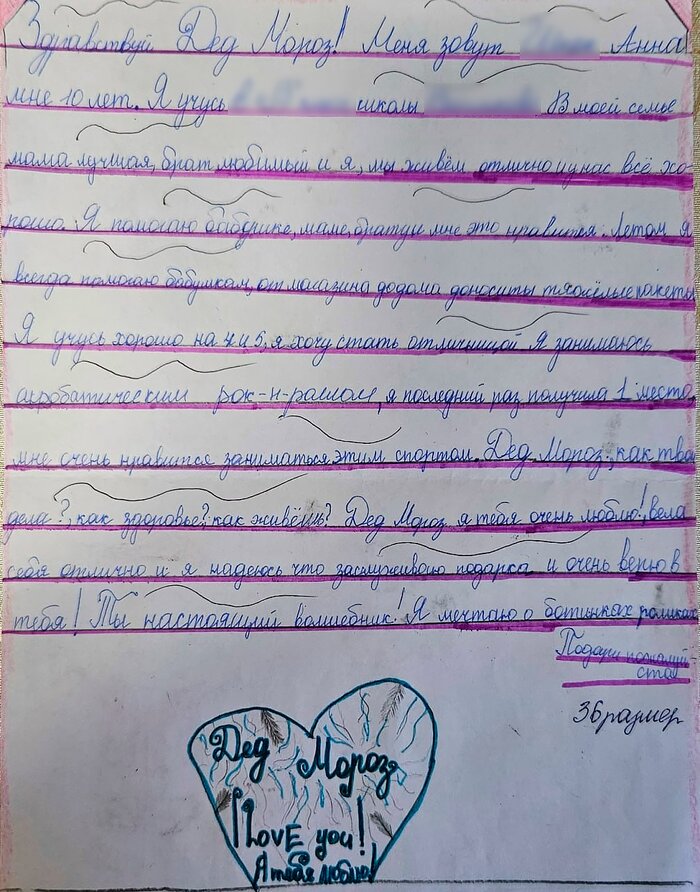 Здравствуй Дед Мороз! Меня зовут Анна!
мне 10 лет. Я учусь школы В моей семье
мама лучшая, брат любимый и я, мы живём отлично и у нас всё хо-
рошо. Я помогаю бабушке, маме, брату и мне это нравится. Летом я
всегда помогаю бабулкам, от магазина додома доносить тяжёлые пакеты
Я учусь хорошо на 4 и 5, я хочу стать отличницой Я занимаюсь
акробатическим рок-н-ролом, я последний раз получила 1 место,
мне очень нравится заниматься этим спортом. Дед Мороз, как тва
дела?, как здоровье? как живёшь? Дед Мороз я тебя очень люблю!, вела
себя отлично и я надеюсь что заслуживаю подарка и очень верю в
тебя! Ты настоящий волшебник! Я мечтаю о ботинках роликах
Подари пожалуй-
ста
36 размер
Дед Мороз
I LOVE you!
Я тебя люблю!